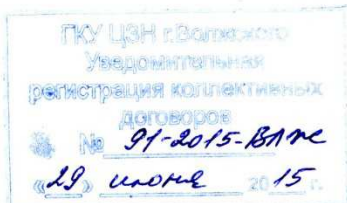 ГКУ ЦЗН г.Волжского
Уведомительная
регистрация коллективных
договоров
№ 91-2015-ВЛЖ
«29» июня 2015 г.